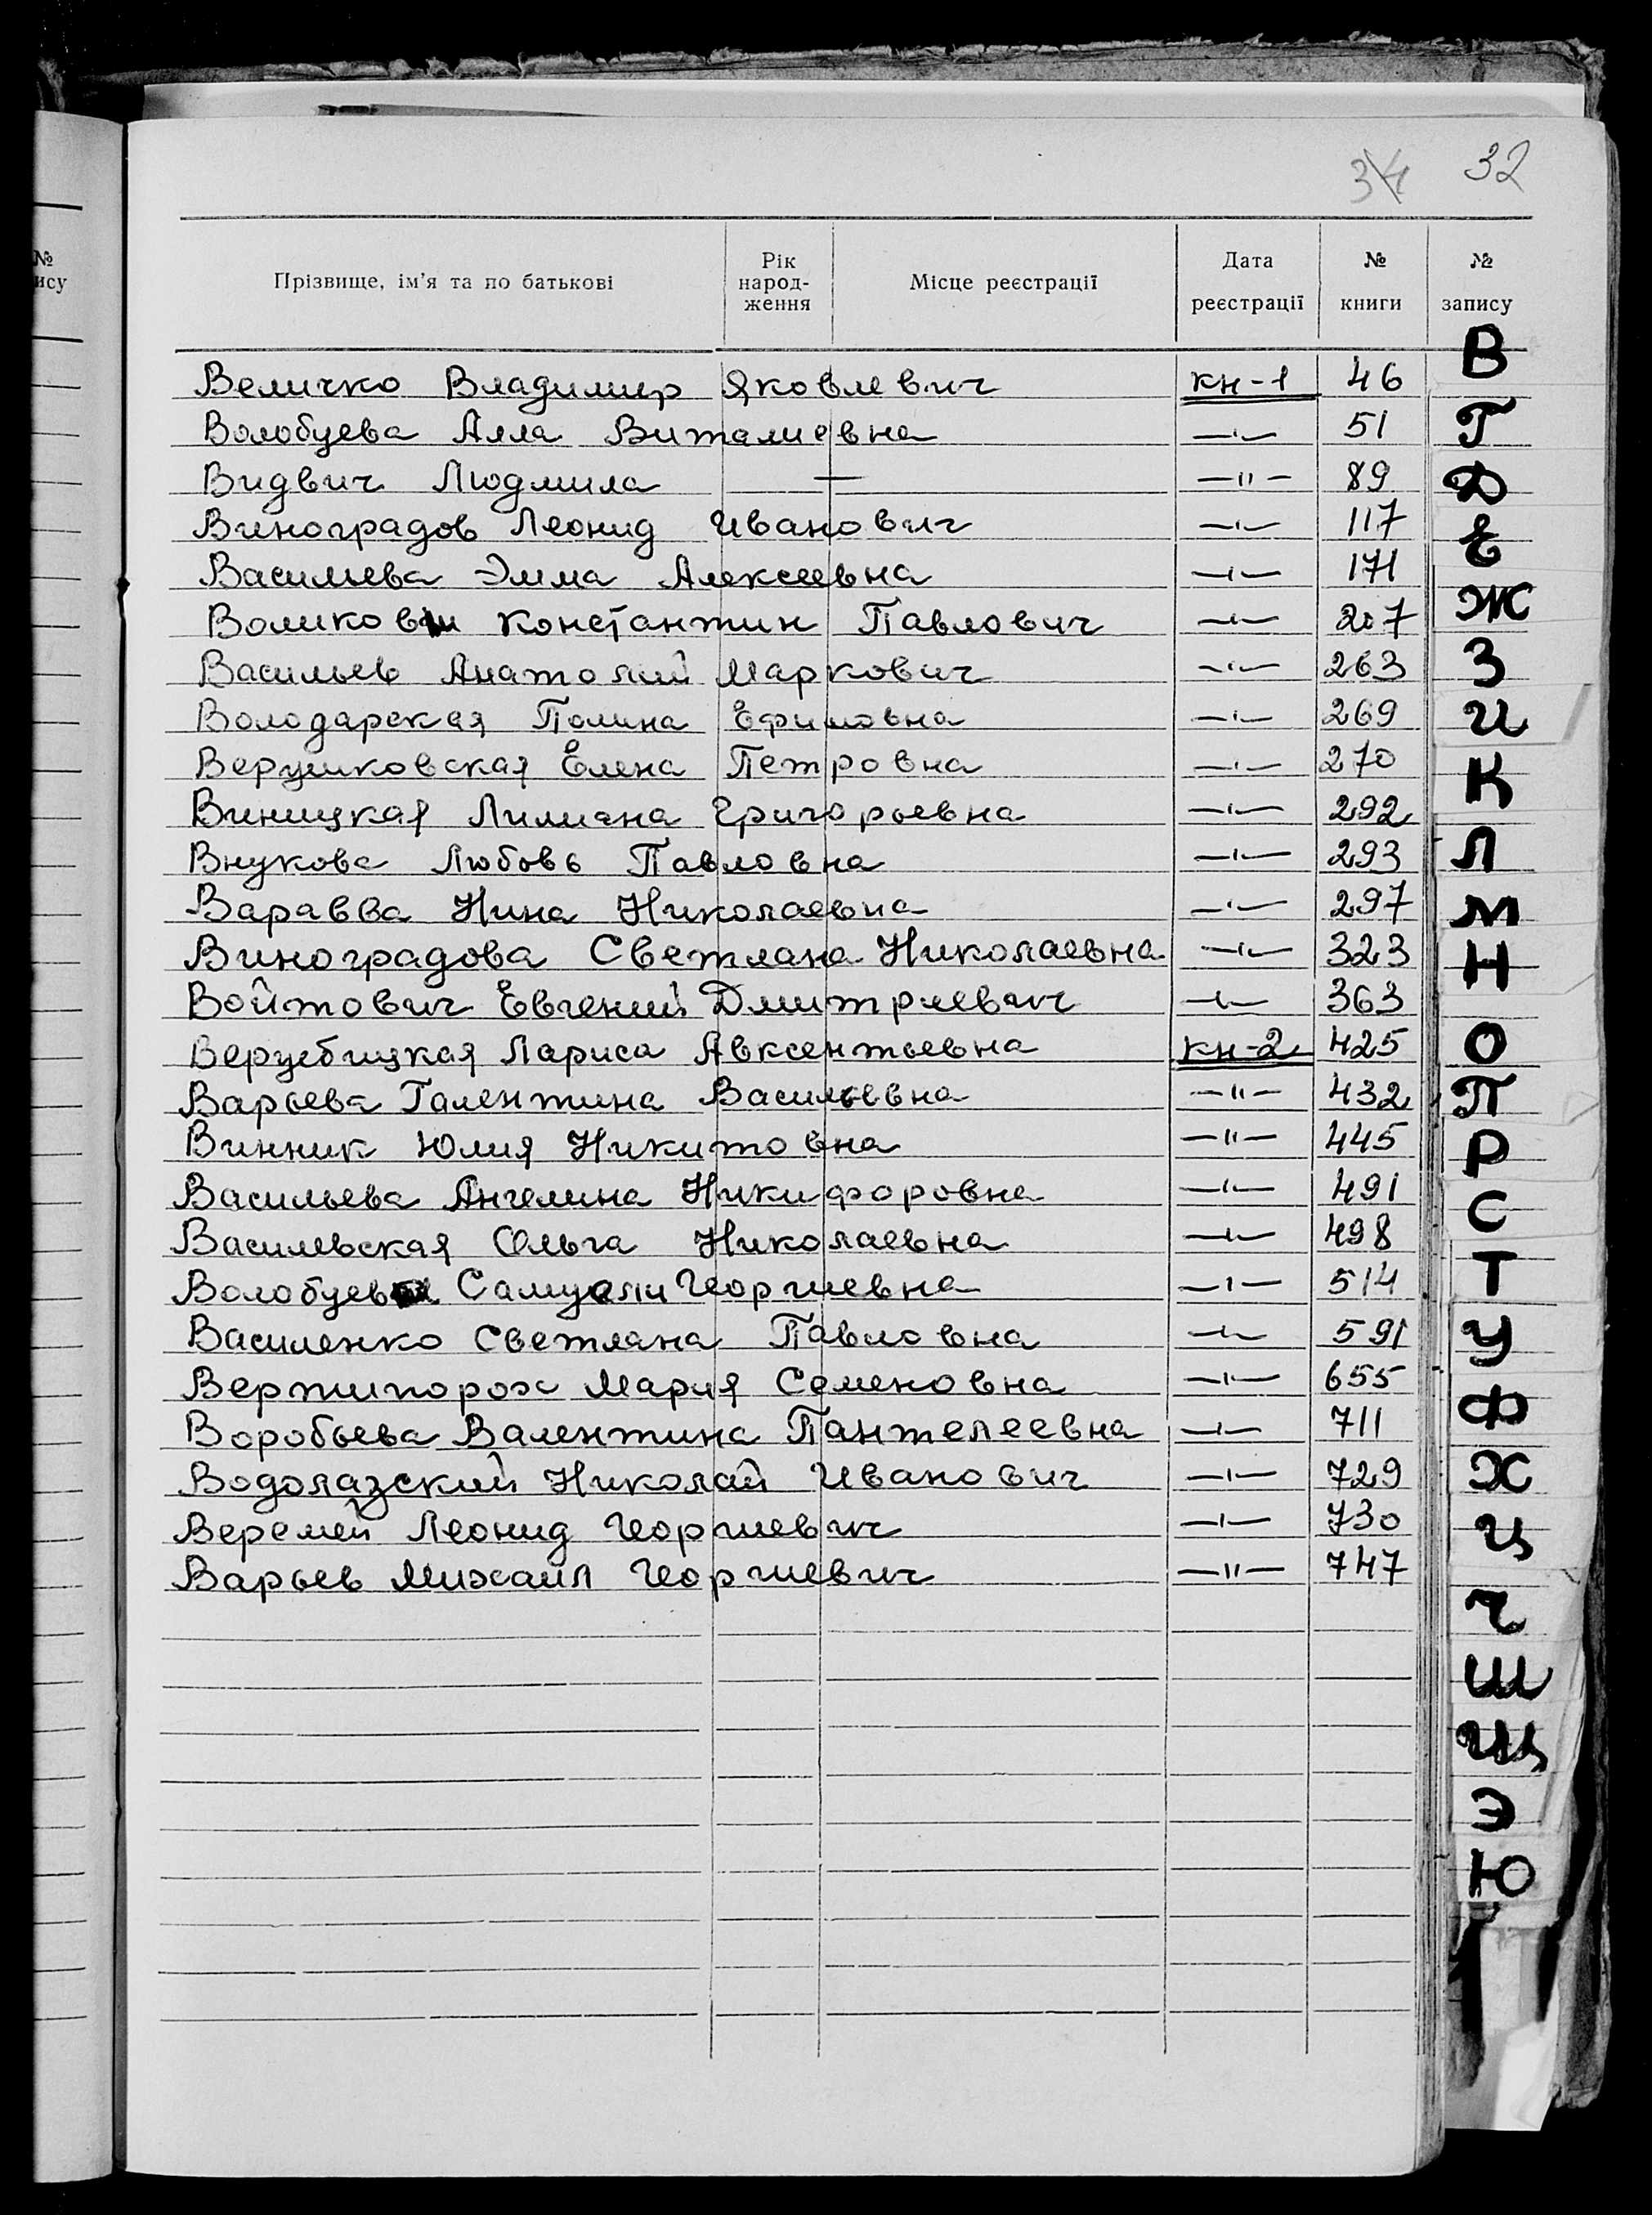 34 32
№
ису
Прізвище, ім'я та по батькові Рік народ-ження Місце реєстрації Дата реєстрації № книги № запису
Величко Владимир Яковлевич кн-1 46
Волобуева Алла Виталиевна —〃— 51
Видвич Людмила — —〃— 89
Виноградов Леонид Иванович —〃— 117
Васильева Эмма Алексеевна —〃— 171
Константин Павлович —〃— 207
Васильев Анатолий Маркович —〃— 263
Володарская Полина Ефимовна —〃— 269
Верушковская Елена Петровна —〃— 270
Виницкая Лилиана Григорьевна —〃— 292
Внукова Любовь Павловна —〃— 293
Варавва Нина Николаевна —〃— 297
Виноградова Светлана Николаевна —〃— 323
Войтович Евгений Дмитриевич —〃— 363
Лариса Авксентьевна кн-2 425
Варьева Галентина Васильевна —〃— 432
Винник Юлия Никитовна —〃— 445
Васильева Ангелина Никифоровна —〃— 491
Василевская Ольга Николаевна —〃— 498
Георгиевна —〃— 514
Василенко Светлана Павловна —〃— 591
Вертипорох Мария Семеновна —〃— 655
Воробьева Валентина Пантелеевна —〃— 711
Водолазский Николай Иванович —〃— 729
Веремей Леонид Георгиевич —〃— 730
Варьев Михаил Георгиевич —〃— 747
В
Г
Д
Е
Ж
З
И
К
Л
М
Н
О
П
Р
С
Т
У
Ф
Х
Ц
Ч
Ш
Щ
Э
Ю